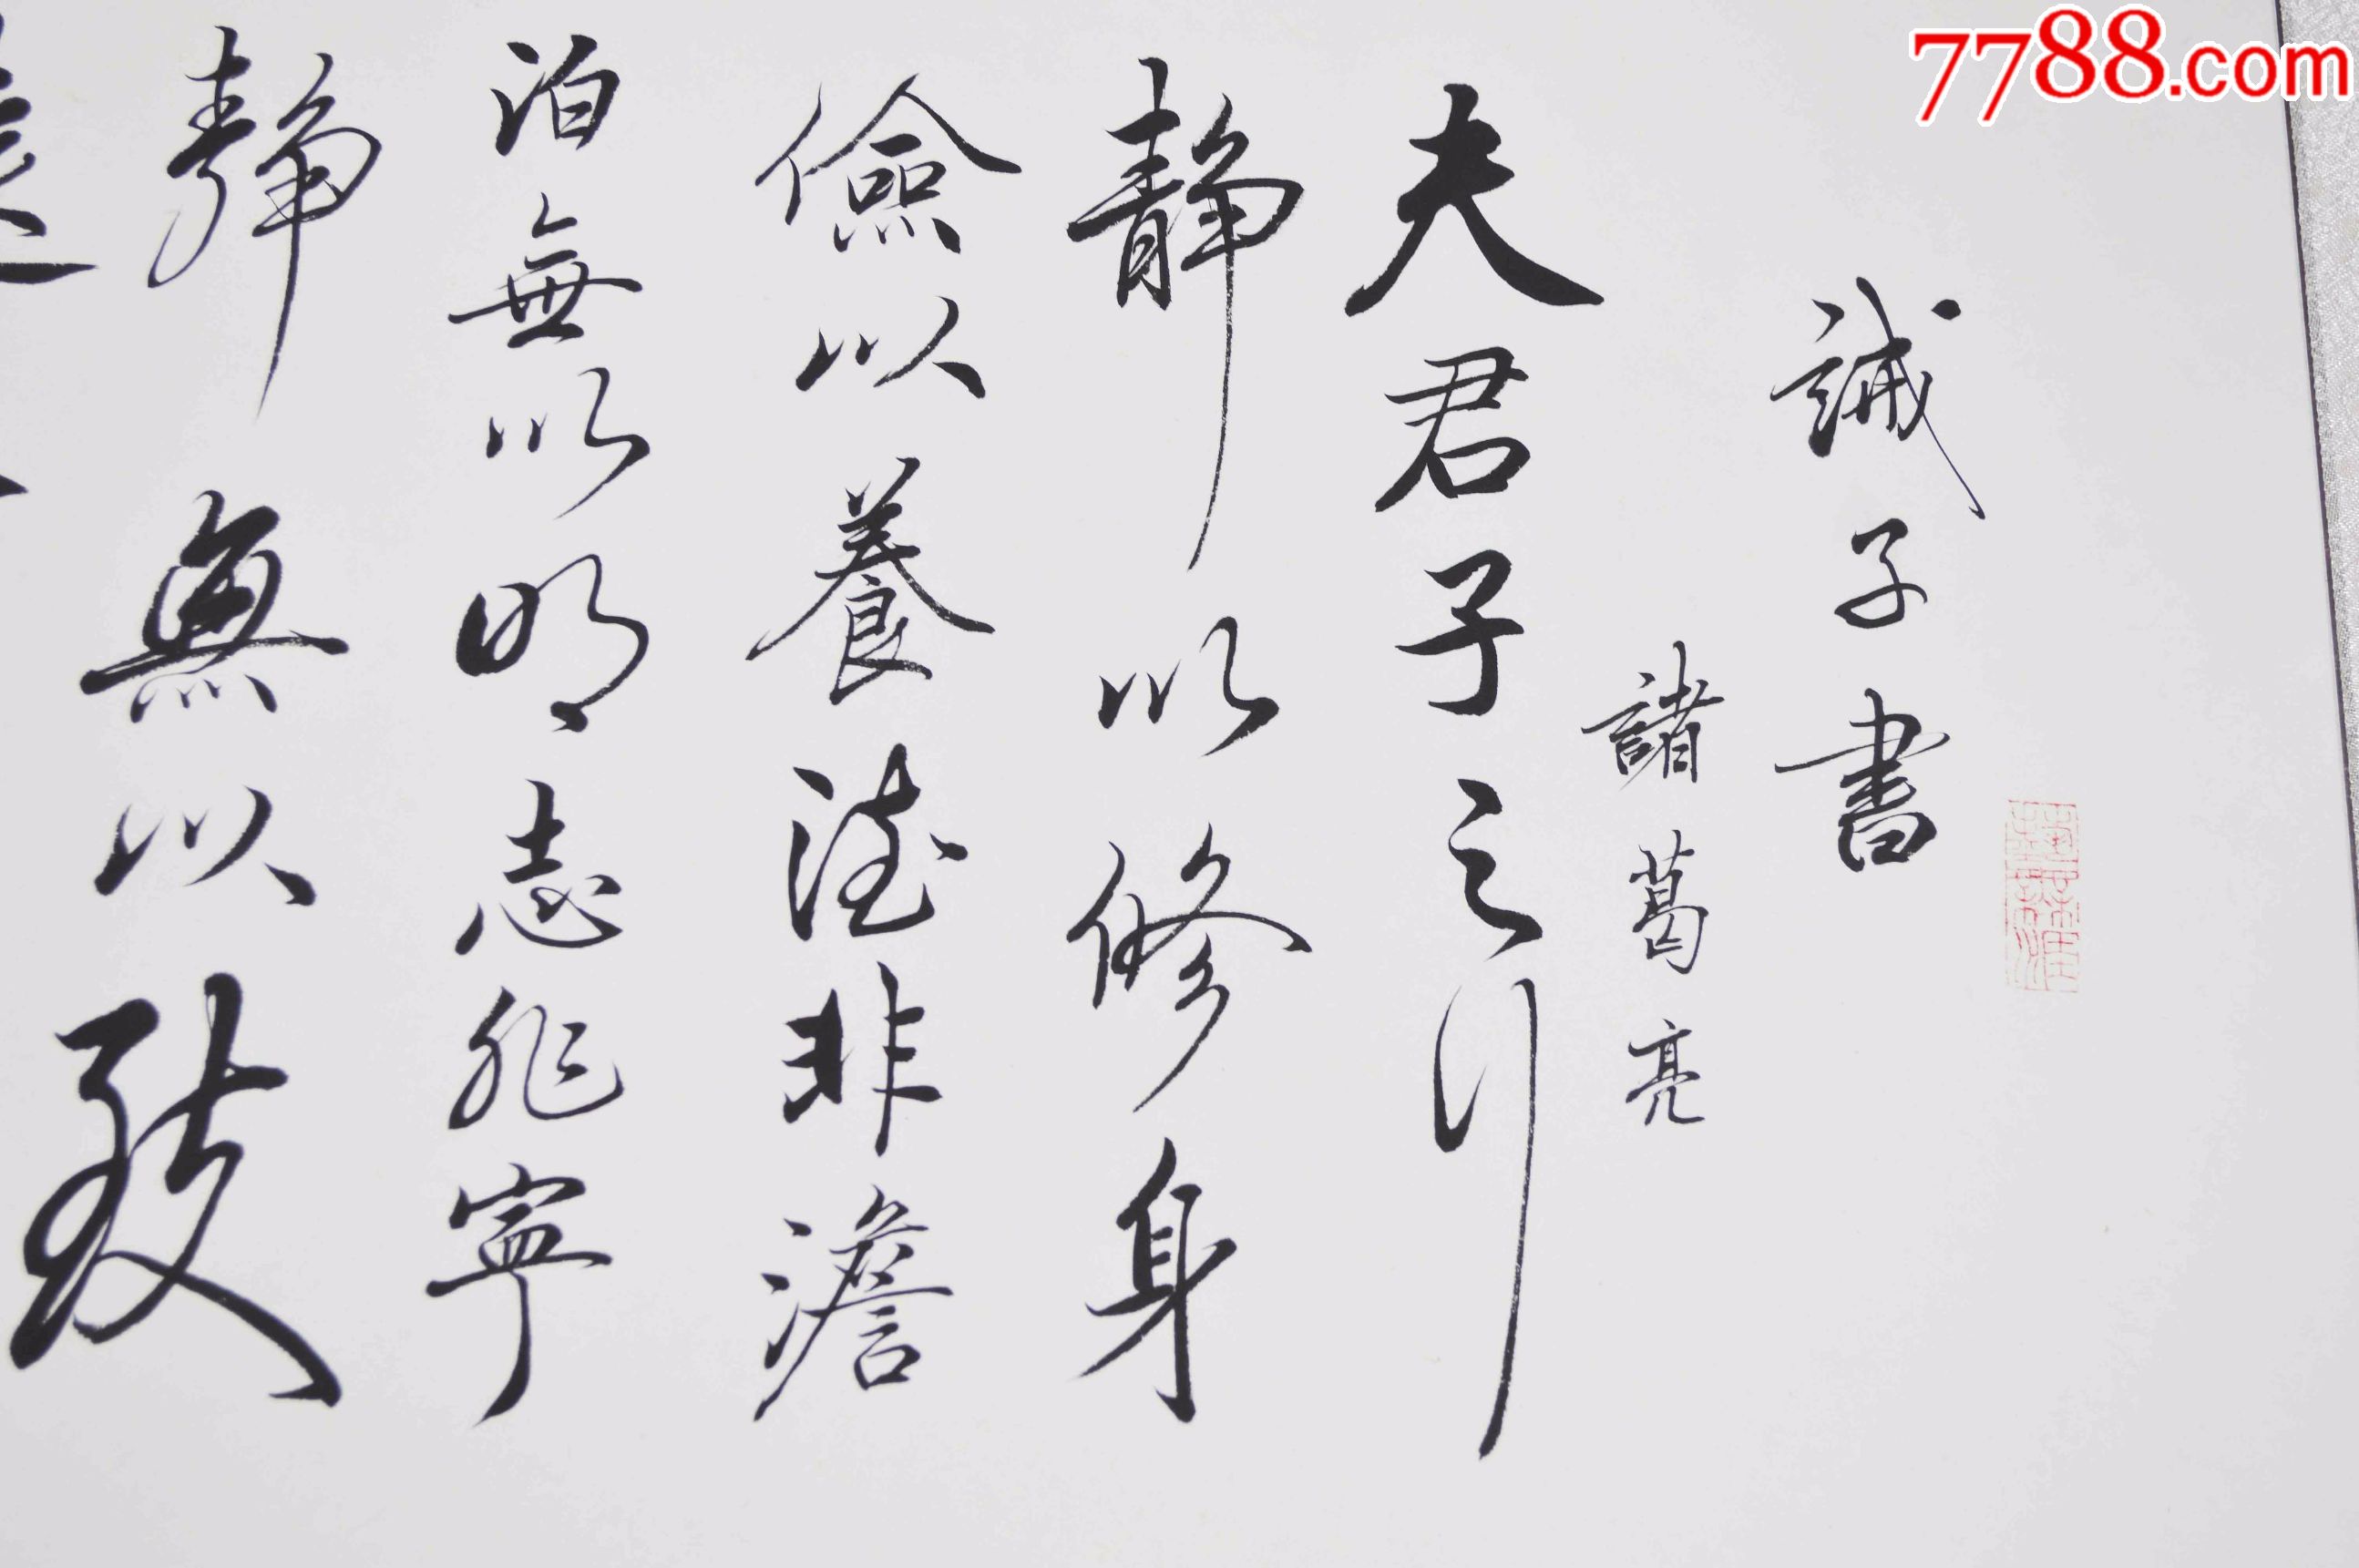 7788.com
誡子書
諸葛亮
夫君子之行
静以修身
儉以養德非澹
泊無以明志非寧
靜無以致